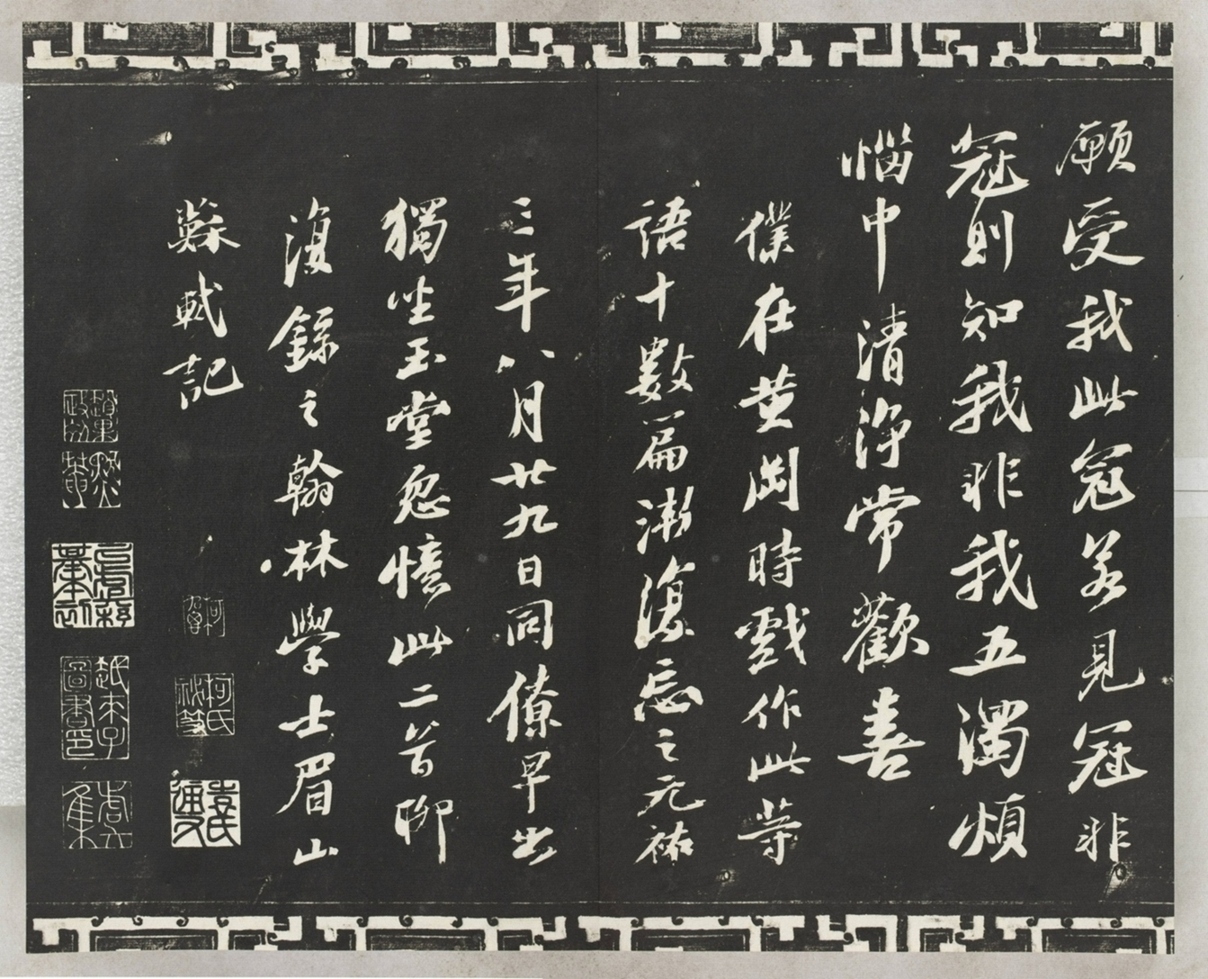 願受我此冠若見冠非
冠則知我非我五濁煩
惱中清淨常歡喜
僕在黄岡時戲作此等
語十數篇漸復忘之元祐
三年八月廿九日同僚早出
獨坐玉堂忽憶此二首聊
復錄之翰林學士眉山
蘇軾記
柯氏
袁氏